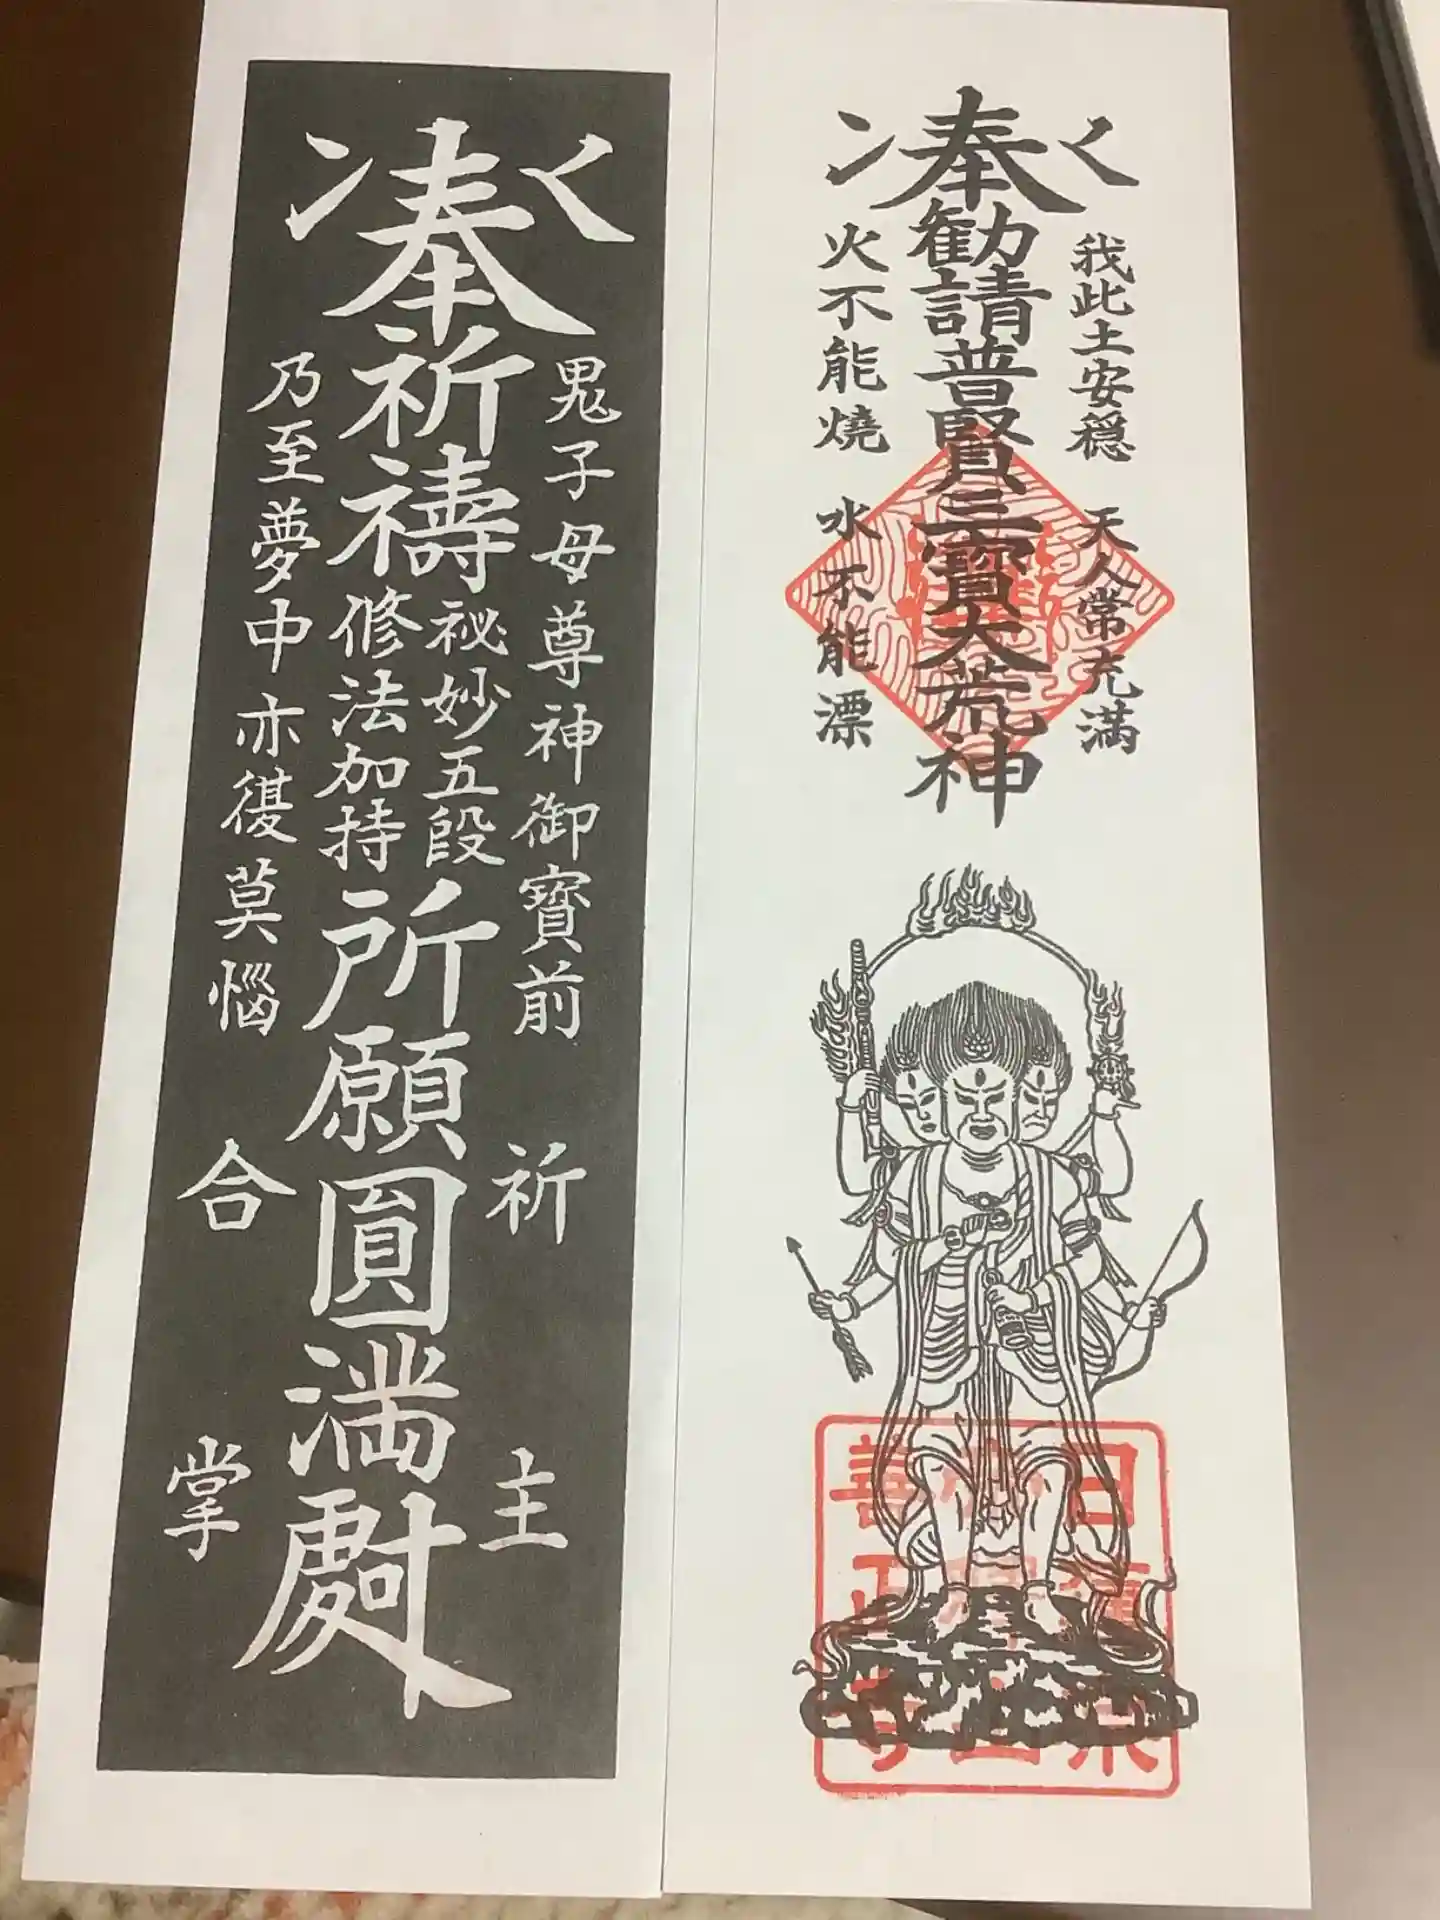 奉勧請普賢三寳大荒神
我此土安穏 天人常充満
火不能燒 水不能漂
奉祈禱
祕妙五段
修法加持
所願圓満
鬼子母尊神御寳前
乃至夢中亦復莫惱
祈主
合掌